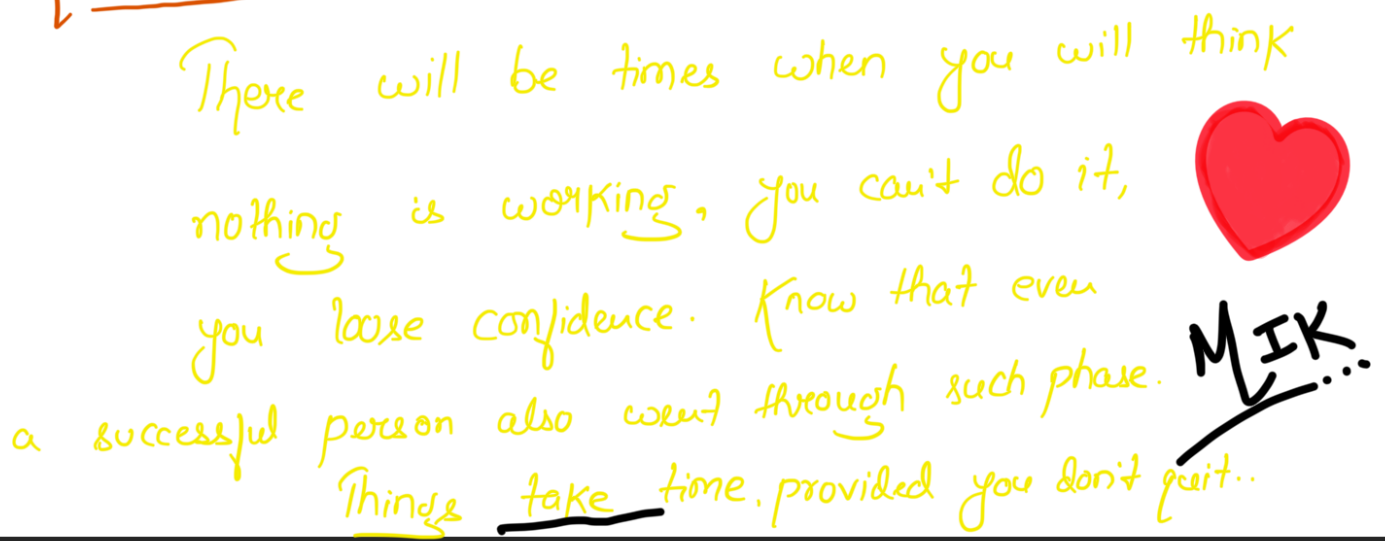 There will be times when you will think
nothing is working, you can't do it,
you loose confidence. Know that even
MIK...
a successful person also went through such phase.
Things take time, provided you don't quit..